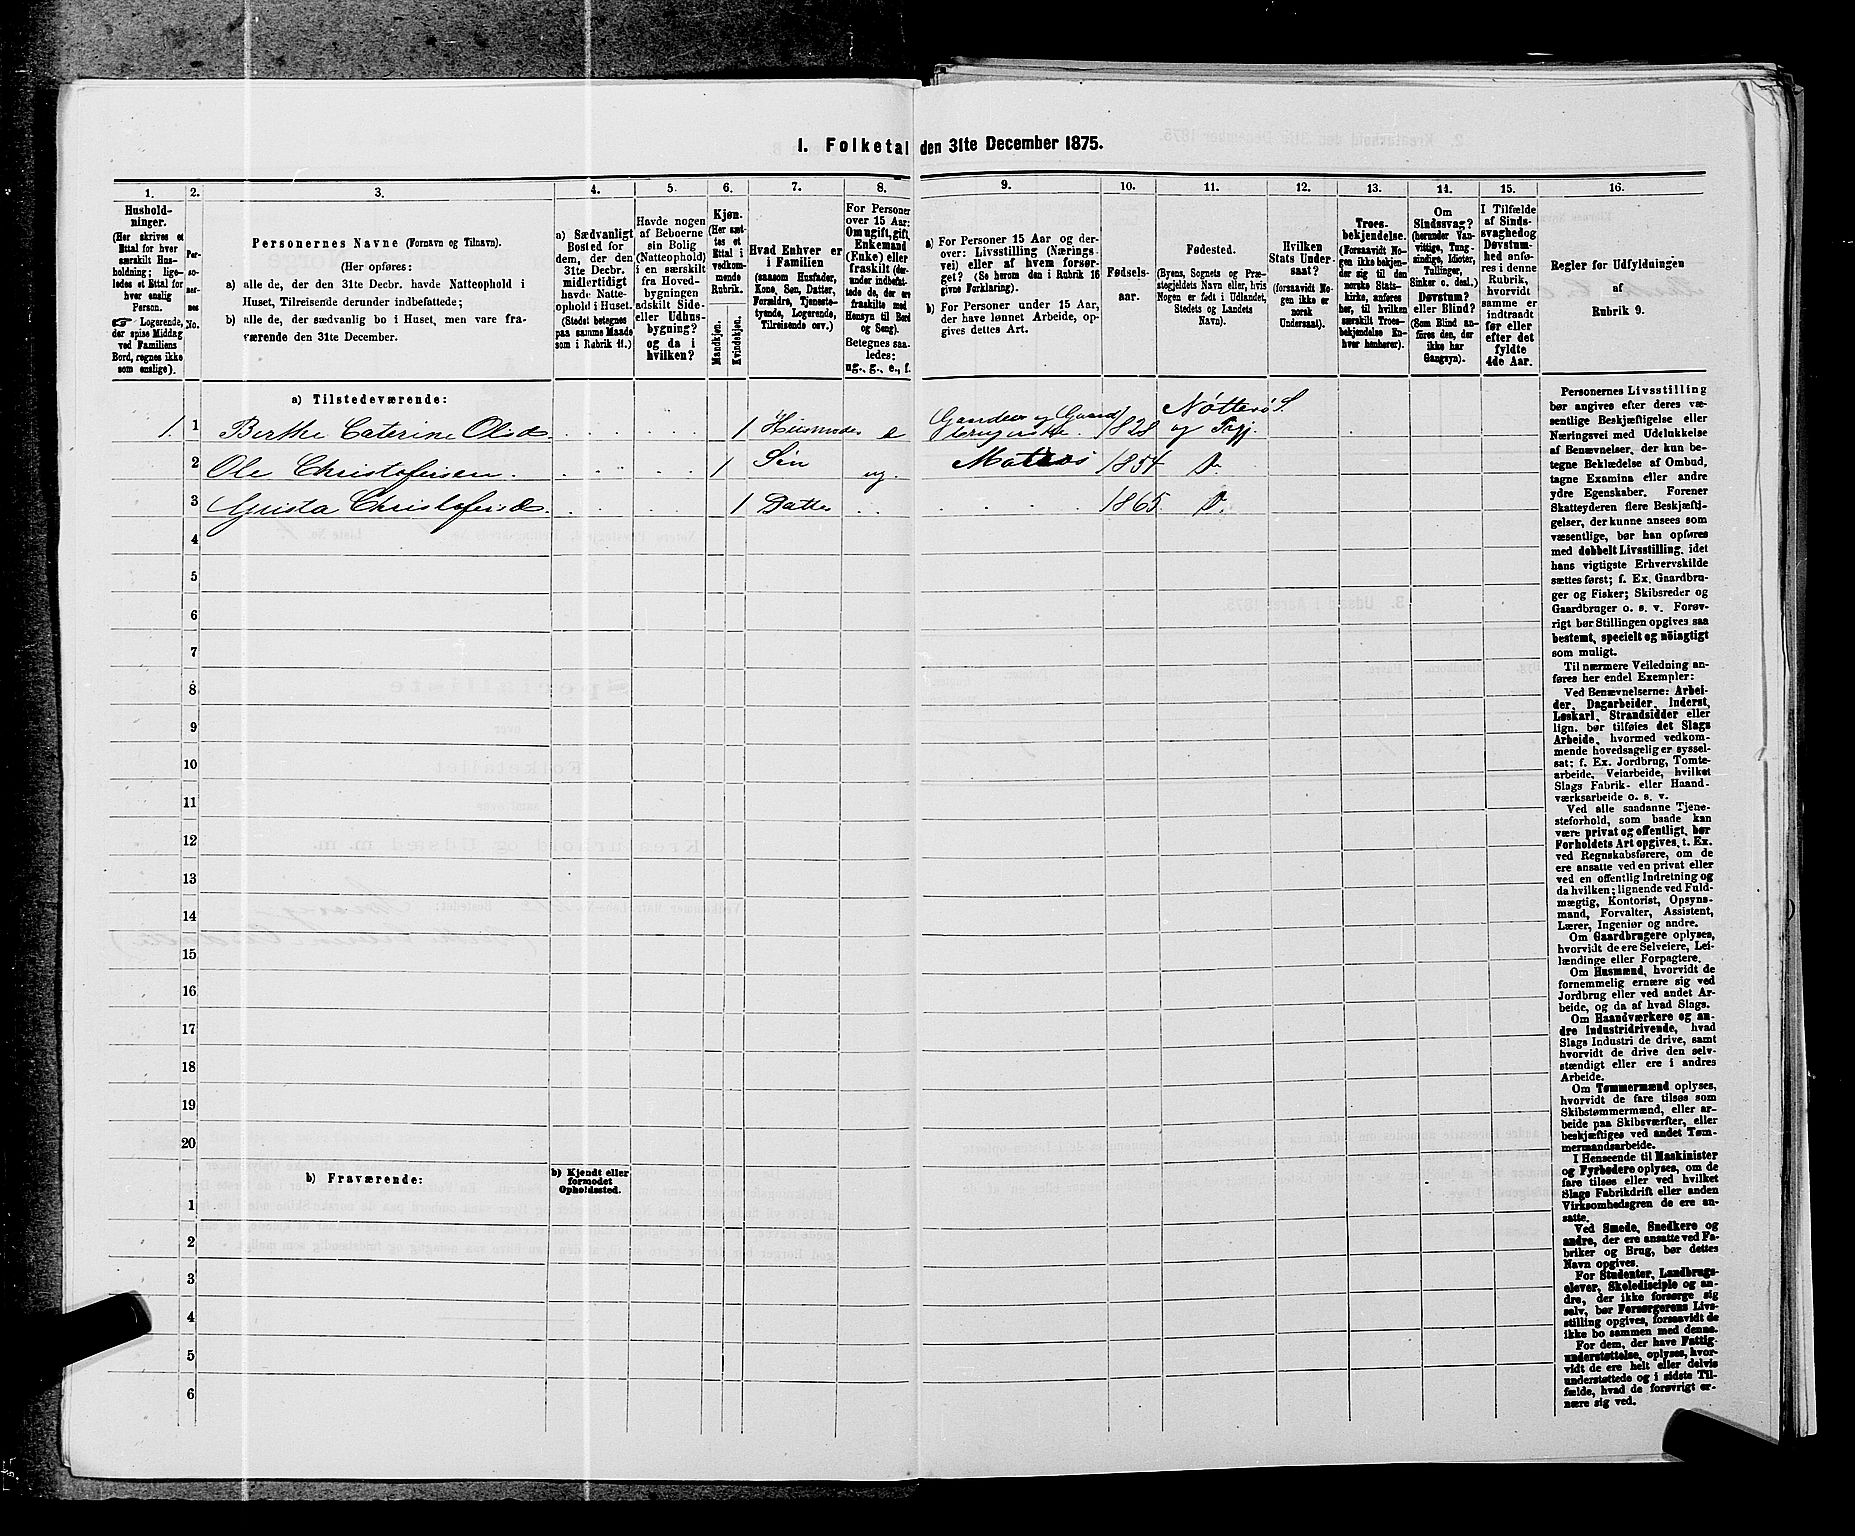 1. Folketal den 31te December 1875.
1.
2.
3.
4.
5.
6.
7.
8.
9.
10.
11.
12.
13.
14.
15.
16.
Hushold-
ninger.
(Her skrives et
Ettal for hver
særskilt Hus-
holdning; lige-
ledes et Ettal for
hver enslig
Person.
☞ Logerende,
der spise Middag
ved Familiens
Bord, regnes ikke
som enslige).
Per-
so-
ner-
nes
No.
Personernes Navne (Fornavn og Tilnavn).
(Her opføres:
a) alle de, der den 31te Decbr. havde Natteophold i
Huset, Tilreisende derunder indbefattede;
b) alle de, der sædvanlig bo i Huset, men vare fra-
værende den 31te December.
a) Sædvanligt
Bosted for
dem, der den
31te Decbr.
midlertidigt
havde Natte-
ophold i Huset.
(Stedet betegnes
paa samme Maade
som i Rubrik 11.)
Havde nogen
af Beboerne
sin Bolig
(Natteophold)
i en særskilt
fra Hoved-
bygningen
adskilt Side-
eller Udhus-
bygning?
og da i
hvilken?
Kjøn.
(Her sæt-
tes et
Ettal i
vedkom-
mende
Rubrik.
Mandkjøn.
Kvindekjøn.
Hvad Enhver er
i Familien
(saasom Husfader,
Kone, Søn, Datter,
Forældre, Tjeneste-
tyende, Logerende,
Tilreisende osv.)
For Personer
over 15 Aar:
Om ugift, gift,
Enkemand
(Enke) eller
fraskilt (der-
under indbefat-
tede de, der ere
fraskilte med
Hensyn til Bord
og Seng).
Betegnes saa-
ledes:
ug., g., e., f.
a) For Personer 15 Aar og der-
over: Livsstilling (Nærings-
vei) eller af hvem forsør-
get? (Se herom den i Rubrik 16
givne Forklaring).
b) For Personer under 15 Aar,
der have lønnet Arbeide, op-
gives dettes Art.
Fødsels-
aar.
Fødested.
(Byens, Sognets og Præ-
stegjeldets Navn eller, hvis
Nogen er født i Udlandet,
Stedets og Landets
Navn).
Hvilken
Stats Under-
saat?
(forsaavidt No-
gen ikke er
norsk
Undersaat).
Troes-
bekjendelse.
(Forsaavidt No-
gen ikke bekjen-
der sig til den
norske Stats-
kirke, anføres
her, til hvilken
særskilt Troes-
bekjendelse En-
hver henhører).
Om
Sindssvag?
(herunder Van-
vittige, Tung-
sindige, Idioter,
Tullinger,
Sinker o. desl.)
Døvstum?
eller Blind?
(Som Blind an-
føres den, der
ikke har
Gangsyn).
I Tilfælde
af Sinds-
svaghed og
Døvstum-
hed anfø-
res i denne
Rubrik,
hvorvidt
samme er
indtraadt
før eller
efter det
fyldte
4de Aar.
Regler for Udfyldningen
af
Rubrik 9.
a) Tilstedeværende:
1. 1 Berthe Caterine Olsd. 1 Husmoder e 1828 Nötterö S. og Prgj.
2 Ole Christofersen. 1 Sön ug. Matros 1854 Do.
3 Christofersd. 1 Datter 1865 Do.
4
5
6
7
8
9
10
11
12
13
14
15
16
17
18
19
20
b) Fraværende:
b) Kjendt eller
formodet
Opholdssted.
1
2
3
4
5
6
Personernes Livsstilling
bør angives efter deres væ-
sentlige Beskjæftigelse eller
Næringsvei med Udelukkelse
af Benævnelser, der kun be-
tegne Beklædelse af Ombud,
tagne Examina eller andre
ydre Egenskaber. Forener
Skatteyderen flere Beskjæfti-
gelser, der kunne ansees som
væsentlige, bør han opføres
med dobbelt Livsstilling, idet
hans vigtigste Erhvervskilde
sættes først; f. Ex. Gaardbru-
ger og Fisker; Skibsreder og
Gaardbruger o. s. v. Forøv-
rigt bør Stillingen opgives saa
bestemt, specielt og nøiagtigt
som muligt.
Til nærmere Veiledning an-
føres her endel Exempler:
Ved Benævnelserne: Arbei-
der, Dagarbeider, Inderst,
Løskarl, Strandsidder eller
lign. bør tilføies det Slags
Arbeide, hvormed vedkom-
mende hovedsagelig er syssel-
sat; f. Ex. Jordbrug, Tomte-
arbeide, Veiarbeide, hvilket
Slags Fabrik- eller Haand-
værksarbeide o. s. v.
Ved alle saadanne Tjene-
steforhold, som baade kan
være privat og offentligt, bør
Forholdets Art opgives, t. Ex.
ved Regnskabsførere, om de
ere ansatte ved en privat eller
ved en offentlig Indretning og
da hvilken; lignende ved Fuld-
mægtig, Kontorist, Opsyns-
mand, Forvalter, Assistent,
Lærer, Ingeniør og andre.
Om Gaardbrugere oplyses,
hvorvidt de ere Selveiere, Lei-
lændinge eller Forpagtere.
Om Husmænd, hvorvidt de
fornemmelig ernære sig ved
Jordbrug eller ved andet Ar-
beide, og da af hvad Slags.
Om Haandværkere og an-
dre Industridrivende, hvad
Slags Industri de drive, samt
hvorvidt de drive den selv-
stændigt eller ere i andres
Arbeide.
Om Tømmermænd oplyses,
hvorvidt de fare tilsøs som
Skibstømmermænd, eller ar-
beide paa Skibsværfter, eller
beskjæftiges ved andet Tøm-
mermandsarbeide.
I Henseende til Maskinister
og Fyrbødere oplyses, om de
fare tilsøs eller ved hvilket
Slags Fabrikdrift eller anden
Virksomhedsgren de ere an-
satte.
Ved Smede, Snedkere og
andre, der ere ansatte ved Fa-
briker og Brug, bør dettes
Navn opgives.
For Studenter, Landbrugs-
elever, Skoledisciple og an-
dre, der ikke forsørge sig
selv, bør Forsørgerens Livs-
stilling opgives, forsaavidt de
ikke bo sammen med denne.
For dem, der have Fattig-
understøttelse, oplyses, hvor-
vidt de ere helt eller delvis
understøttede og i sidste Til-
fælde, hvad de forøvrigt er-
nære sig ved.